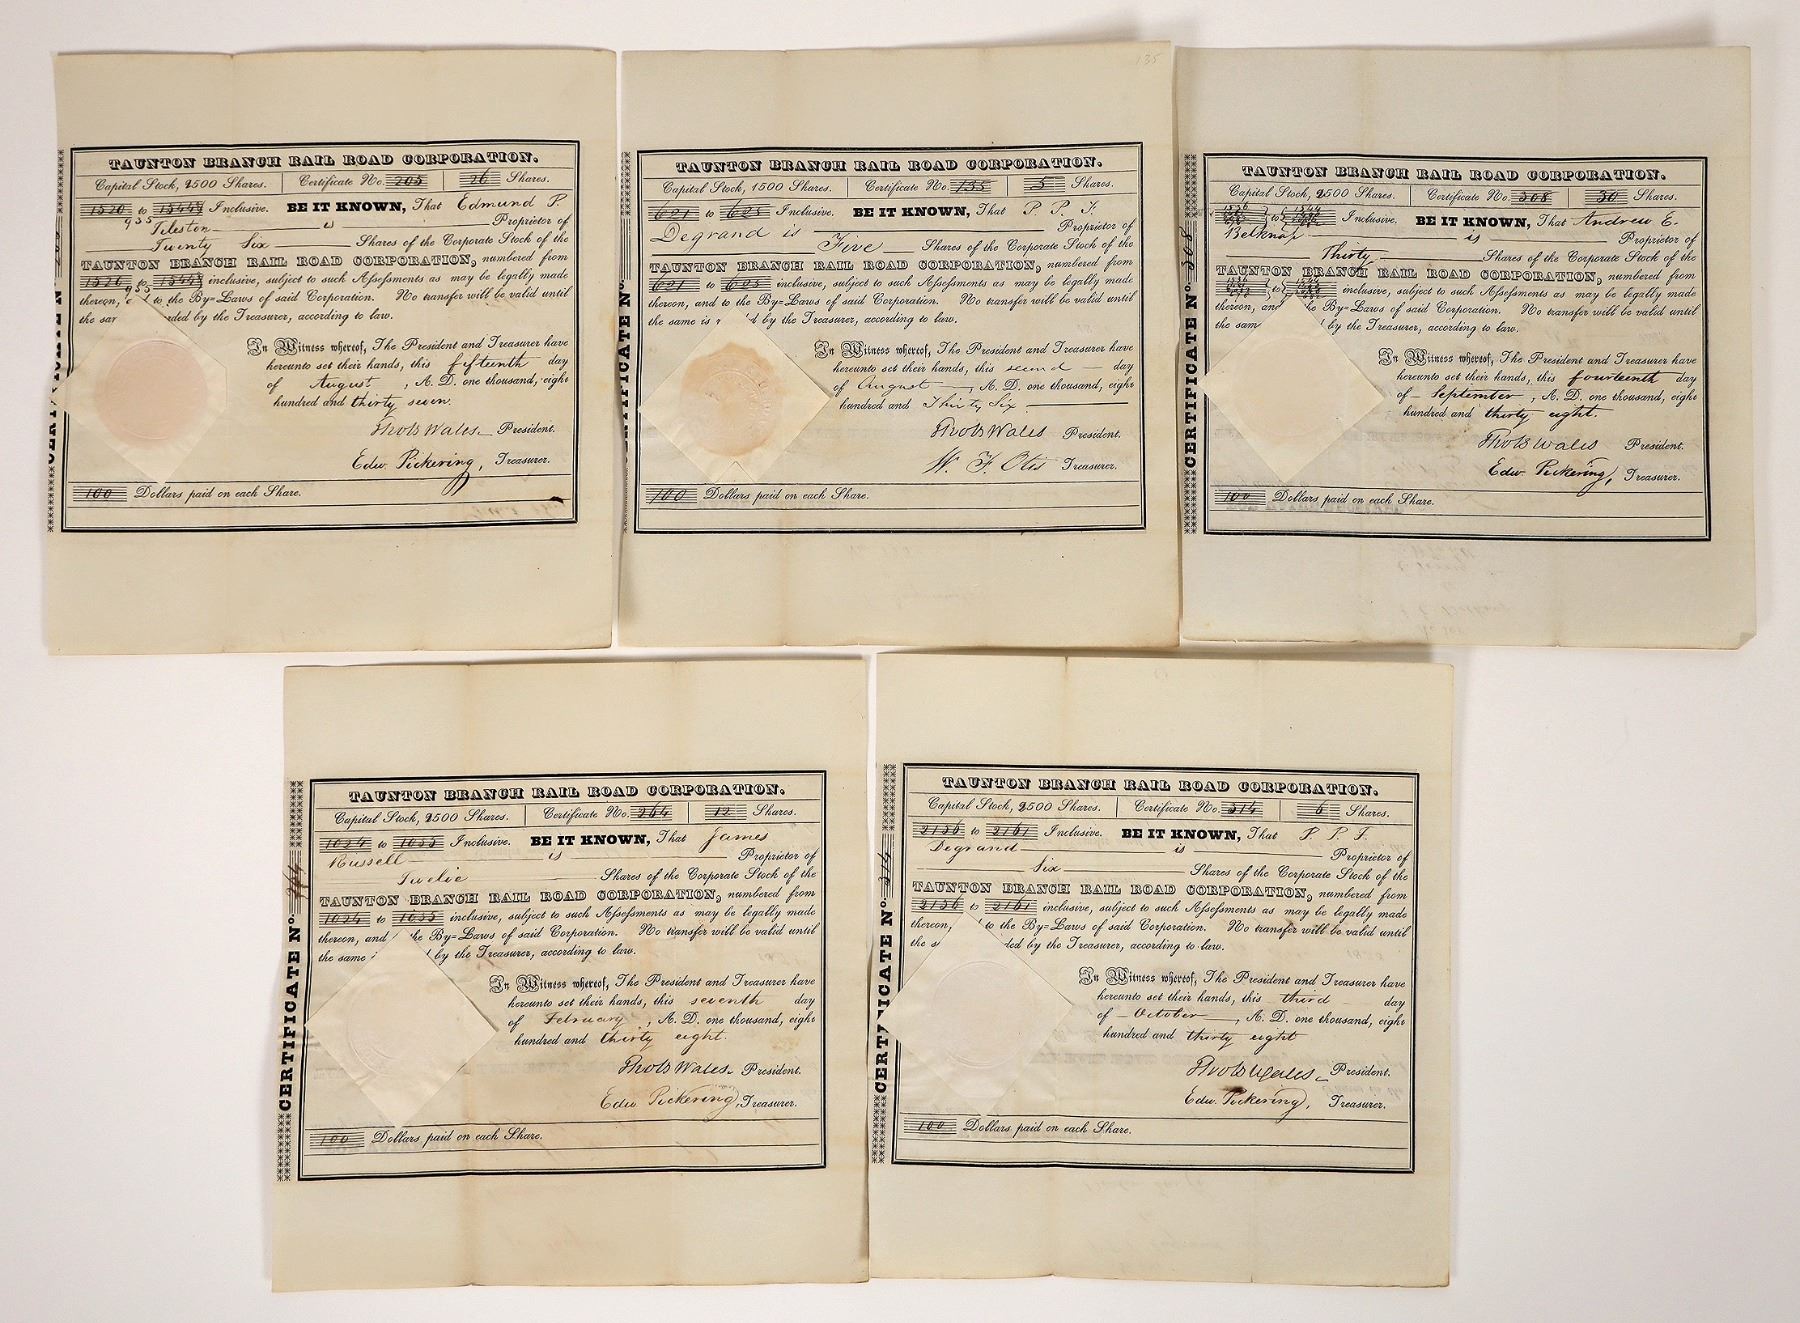 TAUNTON BRANCH RAIL ROAD CORPORATION.
Capital Stock, 2500 Shares. Certificate No. 205 26 Shares.
1520 to Inclusive. BE IT KNOWN, That Edmund P.
935
Tileston is Proprietor of
Twenty Six Shares of the Corporate Stock of the
TAUNTON BRANCH RAIL ROAD CORPORATION, numbered from
1520 to inclusive, subject to such Assessments as may be legally made
935
thereon, to the By=Laws of said Corporation. No transfer will be valid until
the by the Treasurer, according to law.
In Witness whereof, The President and Treasurer have
hereunto set their hands, this fifteenth day
of August, A. D. one thousand, eight
hundred and thirty seven.
Thos B Wales President.
Edw. Pickering, Treasurer.
100 Dollars paid on each Share.
135
TAUNTON BRANCH RAIL ROAD CORPORATION.
Capital Stock, 1500 Shares. Certificate No. 135 5 Shares.
621 to 625 Inclusive. BE IT KNOWN, That P. P. F.
Degrand is Proprietor of
Five Shares of the Corporate Stock of the
TAUNTON BRANCH RAIL ROAD CORPORATION, numbered from
621 to 625 inclusive, subject to such Assessments as may be legally made
thereon, and to the By=Laws of said Corporation. No transfer will be valid until
the same is by the Treasurer, according to law.
In Witness whereof, The President and Treasurer have
hereunto set their hands, this second day
of August, A. D. one thousand, eight
hundred and Thirty Six.
Thos B Wales President.
W. F. Otis Treasurer.
100 Dollars paid on each Share.
CERTIFICATE No.
TAUNTON BRANCH RAIL ROAD CORPORATION.
Capital Stock, 2500 Shares. Certificate No. 308 30 Shares.
to Inclusive. BE IT KNOWN, That Andrew E.
Belknap is Proprietor of
Thirty Shares of the Corporate Stock of the
TAUNTON BRANCH RAIL ROAD CORPORATION, numbered from
to inclusive, subject to such Assessments as may be legally made
thereon, and the By=Laws of said Corporation. No transfer will be valid until
the same by the Treasurer, according to law.
In Witness whereof, The President and Treasurer have
hereunto set their hands, this fourteenth day
of September, A. D. one thousand, eight
hundred and thirty eight.
Thos B Wales President.
Edw. Pickering, Treasurer.
100 Dollars paid on each Share.
CERTIFICATE No. 308
TAUNTON BRANCH RAIL ROAD CORPORATION.
Capital Stock, 2500 Shares. Certificate No. 264 12 Shares.
1024 to 1035 Inclusive. BE IT KNOWN, That James
Russell is Proprietor of
Twelve Shares of the Corporate Stock of the
TAUNTON BRANCH RAIL ROAD CORPORATION, numbered from
1024 to 1035 inclusive, subject to such Assessments as may be legally made
thereon, and the By=Laws of said Corporation. No transfer will be valid until
the same by the Treasurer, according to law.
In Witness whereof, The President and Treasurer have
hereunto set their hands, this seventh day
of February, A. D. one thousand, eight
hundred and thirty eight.
Thos B Wales President.
Edw. Pickering, Treasurer.
100 Dollars paid on each Share.
CERTIFICATE No. 264
TAUNTON BRANCH RAIL ROAD CORPORATION.
Capital Stock, 2500 Shares. Certificate No. 314 6 Shares.
2156 to 2161 Inclusive. BE IT KNOWN, That P. P. F.
Degrand is Proprietor of
Six Shares of the Corporate Stock of the
TAUNTON BRANCH RAIL ROAD CORPORATION, numbered from
2156 to 2161 inclusive, subject to such Assessments as may be legally made
thereon, to the By=Laws of said Corporation. No transfer will be valid until
the by the Treasurer, according to law.
In Witness whereof, The President and Treasurer have
hereunto set their hands, this third day
of October, A. D. one thousand, eight
hundred and thirty eight
Thos B Wales President.
Edw. Pickering, Treasurer.
100 Dollars paid on each Share.
CERTIFICATE No. 314